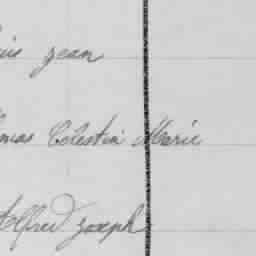 Jean
Celestin Marie
Alfred Joseph